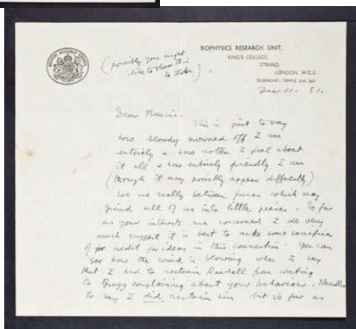 BIOPHYSICS RESEARCH UNIT,
KING'S COLLEGE,
STRAND,
LONDON, W.C.2.
(possibly you might
like to show this
to John)
Dec 11. 51.
This is just to say
how bloody browned off I am
entirely & how rotten I feel about
it all & how entirely friendly I am
(though it may possibly appear differently).
We are really between forces which may
grind all of us into little pieces. So far
as your interests are concerned I do very
much suggest it is best to make some sacrifices
of credit for ideas in this connection. You can
see how the wind is blowing when I say
that I had to restrain Randall from writing
to Bragg complaining about your behaviour. Needless
to say I did restrain him but so far as